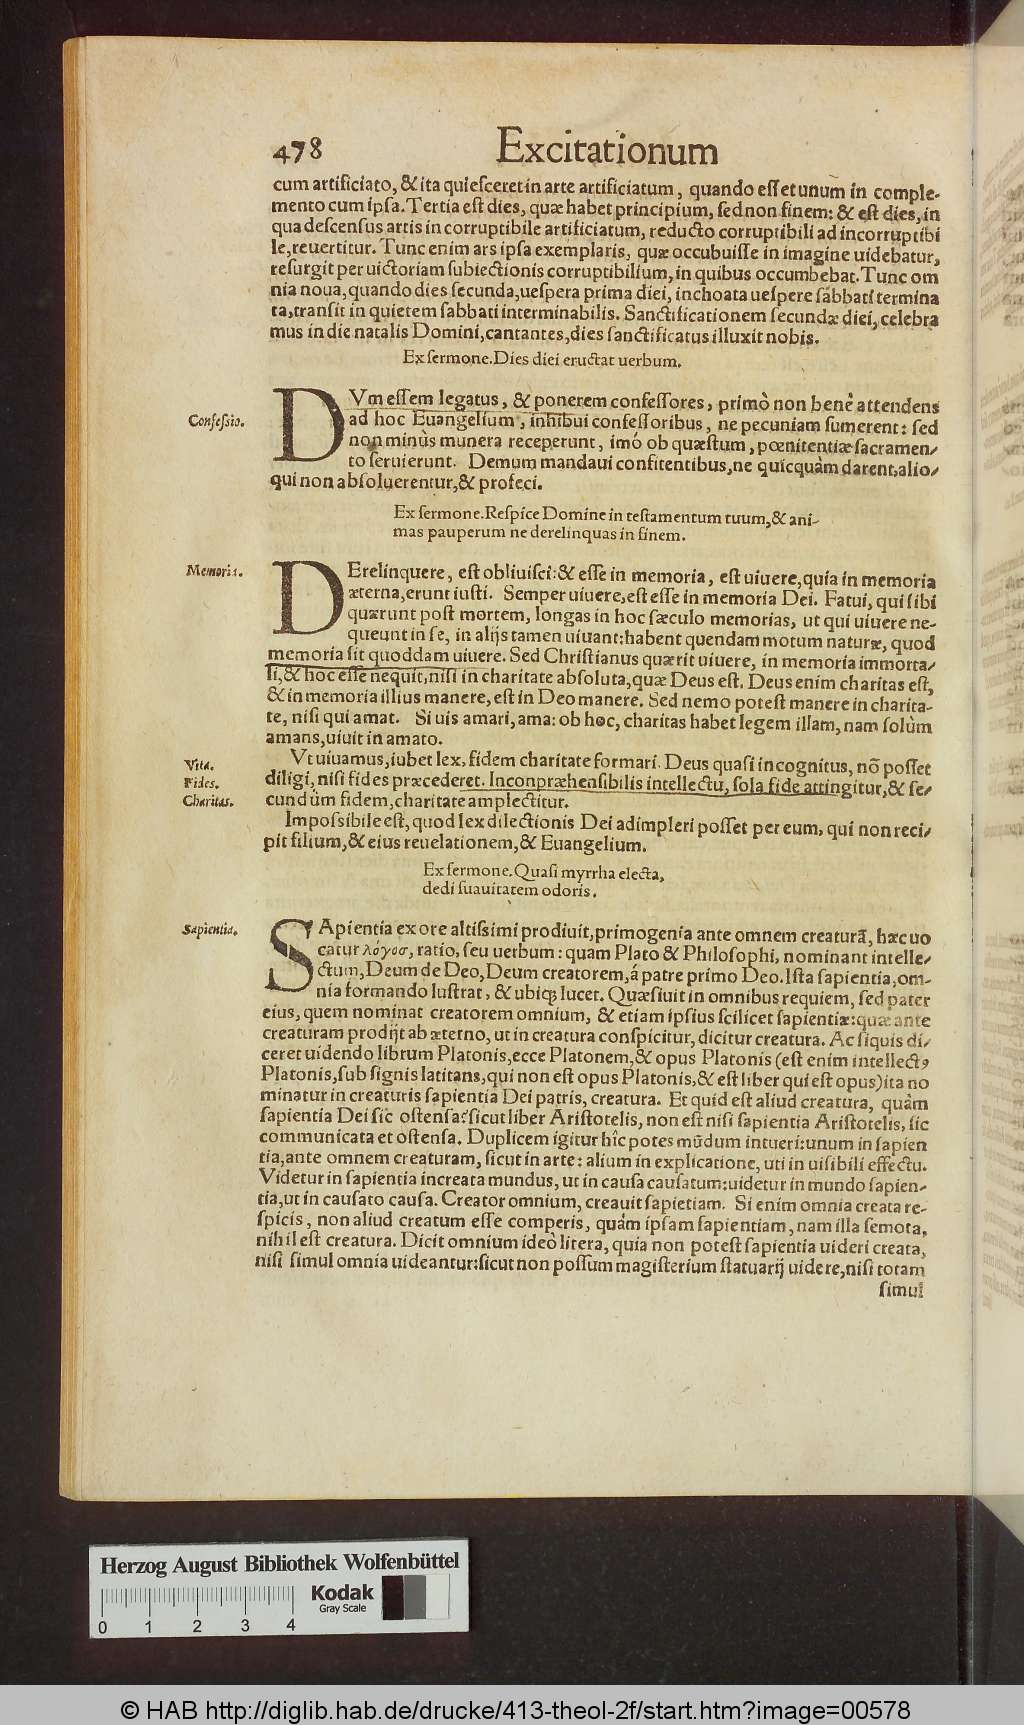 478 Excitationum
cum artificiato, & ita quieſceret in arte artificiatum, quando eſſet unum in comple-
mento cum ipſa. Tertia eſt dies, quæ habet principium, ſed non finem: & eſt dies, in
qua deſcenſus artis in corruptibile artificiatum, reducto corruptibili ad incorruptibi
le, reuertitur. Tunc enim ars ipſa exemplaris, quæ occubuiſſe in imagine uidebatur,
reſurgit per uictoriam ſubiectionis corruptibilium, in quibus occumbebat. Tunc om
nia noua, quando dies ſecunda, ueſpera prima diei, inchoata ueſpere ſabbati termina
ta, tranſit in quietem ſabbati interminabilis. Sanctificationem ſecundæ diei, celebra
mus in die natalis Domini, cantantes, dies ſanctificatus illuxit nobis.
Ex ſermone. Dies diei eructat uerbum.
Confeſsio.
DVm eſſem legatus, & ponerem confeſſores, primò non benè attendens
ad hoc Euangelium, inhibui confeſſoribus, ne pecuniam ſumerent: ſed
non minùs munera receperunt, imò ob quæſtum, pœnitentiæ ſacramen-
to ſeruierunt. Demum mandaui confitentibus, ne quicquàm darent, alio-
qui non abſoluerentur, & profeci.
Ex ſermone. Reſpice Domine in teſtamentum tuum, & ani-
mas pauperum ne derelinquas in finem.
Memoria.
DErelinquere, eſt obliuiſci: & eſſe in memoria, eſt uiuere, quia in memoria
æterna, erunt iuſti. Semper uiuere, eſt eſſe in memoria Dei. Fatui, qui ſibi
quærunt poſt mortem, longas in hoc ſæculo memorias, ut qui uiuere ne-
queunt in ſe, in alijs tamen uiuant: habent quendam motum naturæ, quod
memoria ſit quoddam uiuere. Sed Chriſtianus quærit uiuere, in memoria immorta-
li, & hoc eſſe nequit, niſi in charitate abſoluta, quæ Deus eſt. Deus enim charitas eſt,
& in memoria illius manere, eſt in Deo manere. Sed nemo poteſt manere in charita-
te, niſi qui amat. Si uis amari, ama: ob hoc, charitas habet legem illam, nam ſolùm
amans, uiuit in amato.
Vita.
Fides.
Charitas.
Vt uiuamus, iubet lex, fidem charitate formari. Deus quaſi incognitus, nõ poſſet
diligi, niſi fides præcederet. Inconpræhenſibilis intellectu, ſola fide attingitur, & ſe-
cundùm fidem, charitate amplectitur.
Impoſsibile eſt, quod lex dilectionis Dei adimpleri poſſet per eum, qui non reci-
pit filium, & eius reuelationem, & Euangelium.
Ex ſermone. Quaſi myrrha electa,
dedi ſuauitatem odoris.
Sapientia.
SApientia ex ore altiſsimi prodiuit, primogenia ante omnem creaturã, hæc uo
catur λόγοσ, ratio, ſeu uerbum: quam Plato & Philoſophi, nominant intelle-
ctum, Deum de Deo, Deum creatorem, á patre primo Deo. Iſta ſapientia, om-
nia formando luſtrat, & ubiq; lucet. Quæſiuit in omnibus requiem, ſed pater
eius, quem nominat creatorem omnium, & etiam ipſius ſcilicet ſapientiæ: quæ ante
creaturam prodijt ab æterno, ut in creatura conſpicitur, dicitur creatura. Ac ſiquis di-
ceret uidendo librum Platonis, ecce Platonem, & opus Platonis (eſt enim intellectꝰ
Platonis, ſub ſignis latitans, qui non eſt opus Platonis, & eſt liber qui eſt opus) ita no
minatur in creaturis ſapientia Dei patris, creatura. Et quid eſt aliud creatura, quàm
ſapientia Dei ſic oſtenſa? ſicut liber Ariſtotelis, non eſt niſi ſapientia Ariſtotelis, ſic
communicata et oſtenſa. Duplicem igitur hîc potes mũdum intueri: unum in ſapien
tia, ante omnem creaturam, ſicut in arte: alium in explicatione, uti in uiſibili effectu.
Videtur in ſapientia increata mundus, ut in cauſa cauſatum: uidetur in mundo ſapien-
tia, ut in cauſato cauſa. Creator omnium, creauit ſapietiam. Si enim omnia creata re-
ſpicis, non aliud creatum eſſe comperis, quàm ipſam ſapientiam, nam illa ſemota,
nihil eſt creatura. Dicit omnium ideò litera, quia non poteſt ſapientia uideri creata,
niſi ſimul omnia uideantur: ſicut non poſſum magiſterium ſtatuarij uidere, niſi totam
ſimul
Herzog August Bibliothek Wolfenbüttel
Kodak
Gray Scale
0 1 2 3 4
© HAB http://diglib.hab.de/drucke/413-theol-2f/start.htm?image=00578